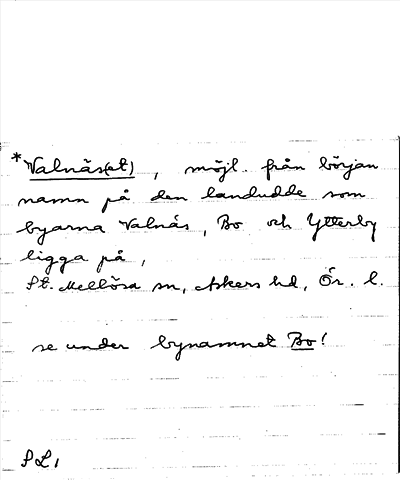 *Valnäs(et), möjl. från början
namn på den landudde som
byarna Valnäs, Bo och Ytterby
ligga på,
St. Mellösa sn, Askers hd, Ör. l.
se under bynamnet Bo!
SL,